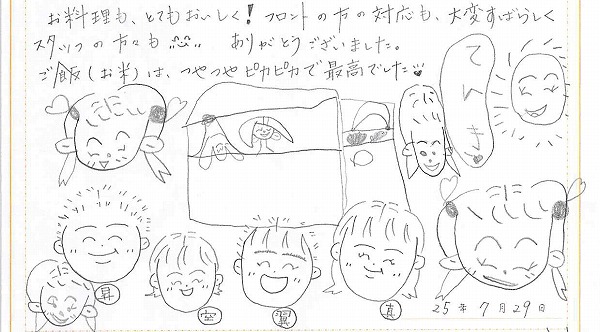 お料理も、とてもおいしく!フロントの方の対応も、大変すばらしく
スタッフの方々も ありがとうございました。
ご飯(お米)は、つやつやピカピカで最高でした
てんき
昇
空
翼
真
25年7月29日